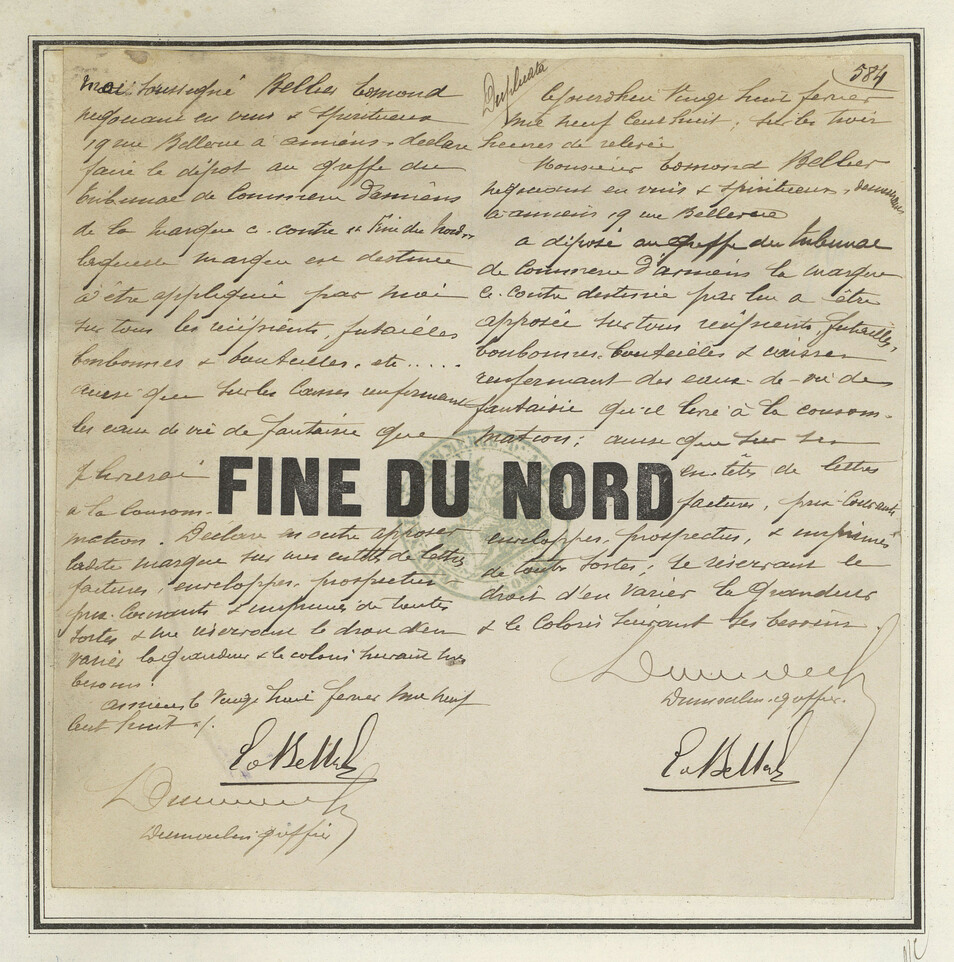 Duplicata
584
Moi soussigné Bellier Edmond
negociant en vins & spiritueux
19 rue Bellevue à amiens - declare
faire le dépot au greffe du
tribunal de Commerce d'amiens
de la marque ci-contre "Fine du Nord"
laquelle marque est destinée
à être appliquée par moi
sur tous les récipients, futailles
bonbonnes & bouteilles, etc.....
ainsi que sur les Caisses renfermant
les eaux de vie de fantaisie que
je livrerai
à la Consom-
mation. Déclare en outre apposer
ladite marque sur mes entêtes de lettres
factures, enveloppes, prospectus
prix-Courants & imprimés de toutes
sortes & me réservant le droit d'en
varier la grandeur & le coloris suivant mes
besoins.
amiens le Vingt huit fevrier Mil neuf
Cent huit ./.
Ed Bellier
Dumoulin
Dumoulin greffier
FINE DU NORD
Cejourd'hui Vingt huit fevrier
mil neuf Cent huit, sur les trois
heures de relevée
Monsieur Edmond Bellier
negociant en vins & spiritueux, demeurant
à amiens 19 rue Bellevue
a déposé au greffe du tribunal
de Commerce d'amiens la marque
ci-contre destinée par lui à être
apposée sur tous recipients, futailles,
bonbonnes, bouteilles & caisses
renfermant des eaux-de-vie de
fantaisie qu'il livre à la consom-
mation; ainsi que sur ses
entêtes de lettres
factures, prix-Courants
enveloppes, prospectus, & imprimés
de toutes sortes; se réservant le
droit d'en varier la Grandeur
& le Coloris suivant ses besoins.
Dumoulin
Dumoulin greffier
Ed Bellier